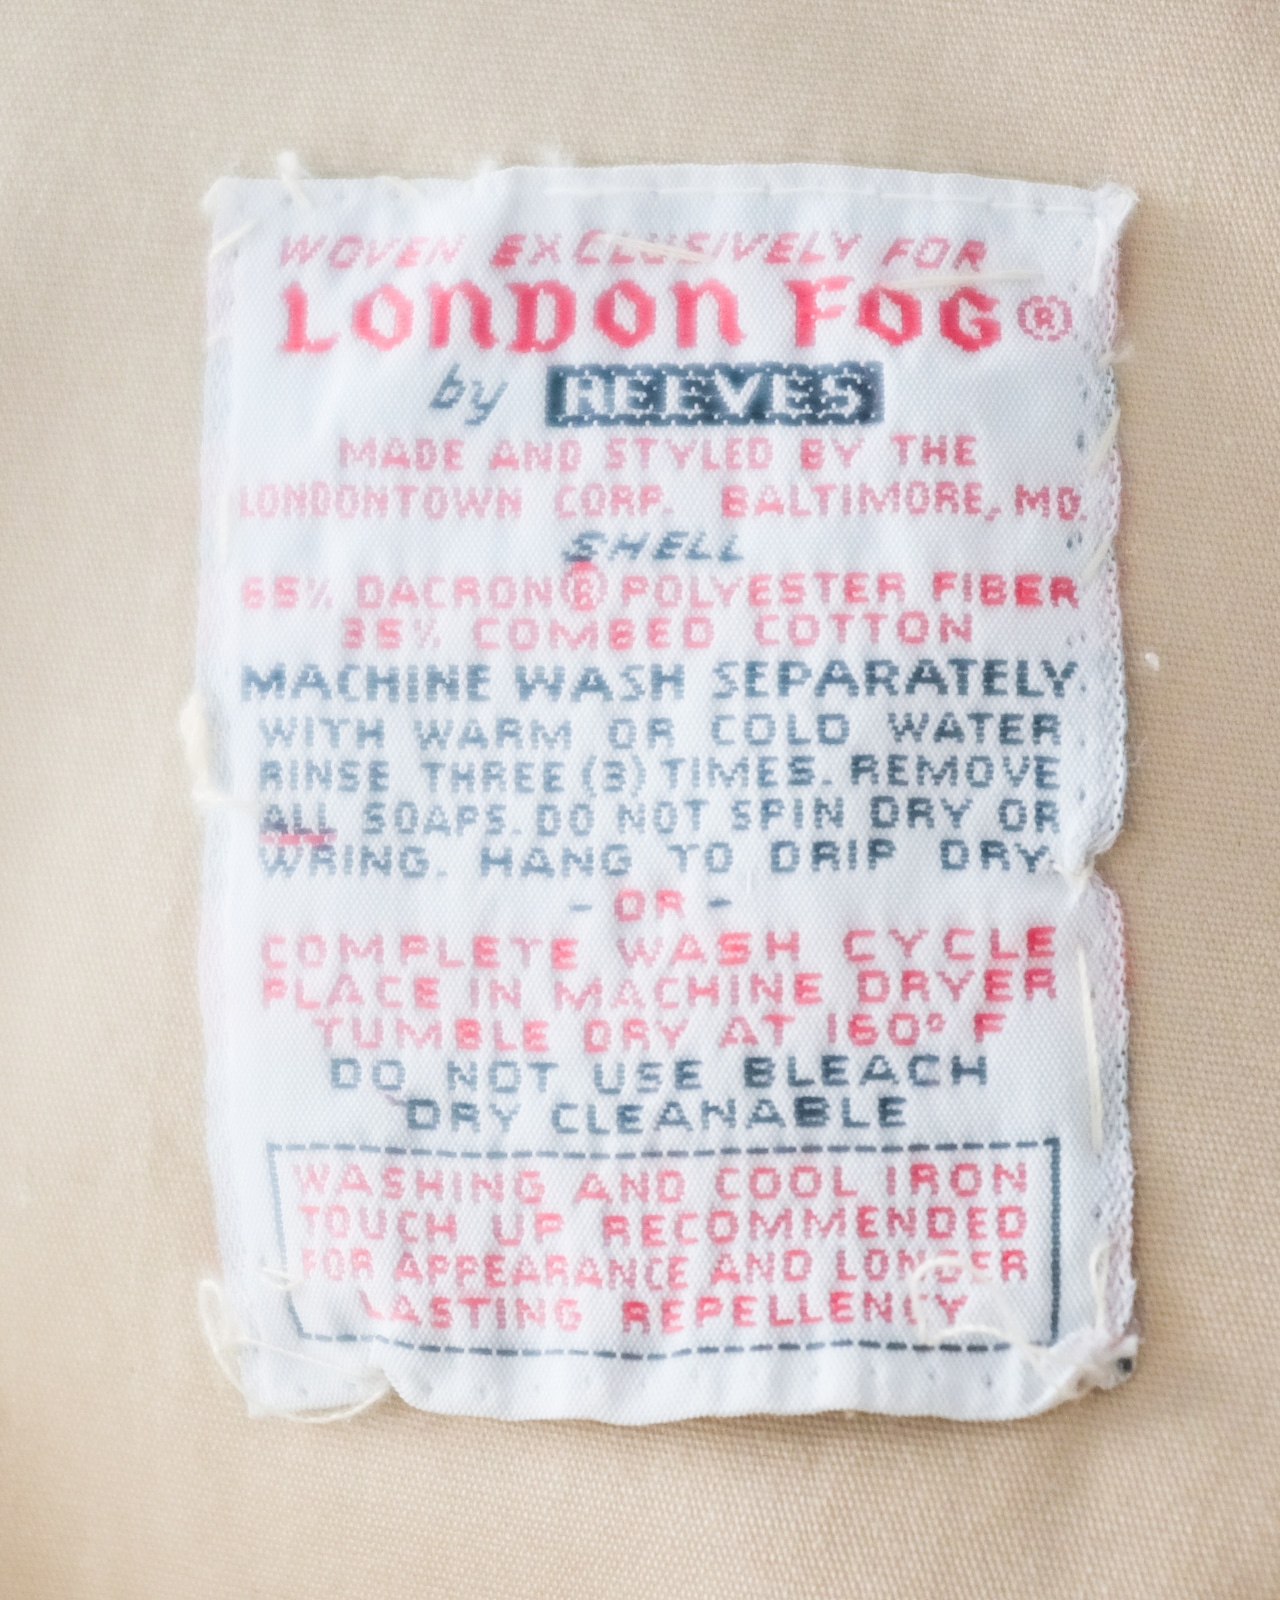 WOVEN EXCLUSIVELY FOR
LONDON FOG®
by REEVES
MADE AND STYLED BY THE
LONDONTOWN CORP. BALTIMORE, MD.
SHELL
65% DACRON® POLYESTER FIBER
35% COMBED COTTON
MACHINE WASH SEPARATELY
WITH WARM OR COLD WATER
RINSE THREE (3) TIMES. REMOVE
ALL SOAPS. DO NOT SPIN DRY OR
WRING. HANG TO DRIP DRY
- OR -
COMPLETE WASH CYCLE
PLACE IN MACHINE DRYER
TUMBLE DRY AT 160° F
DO NOT USE BLEACH
DRY CLEANABLE
WASHING AND COOL IRON
TOUCH UP RECOMMENDED
FOR APPEARANCE AND LONGER
LASTING REPELLENCY